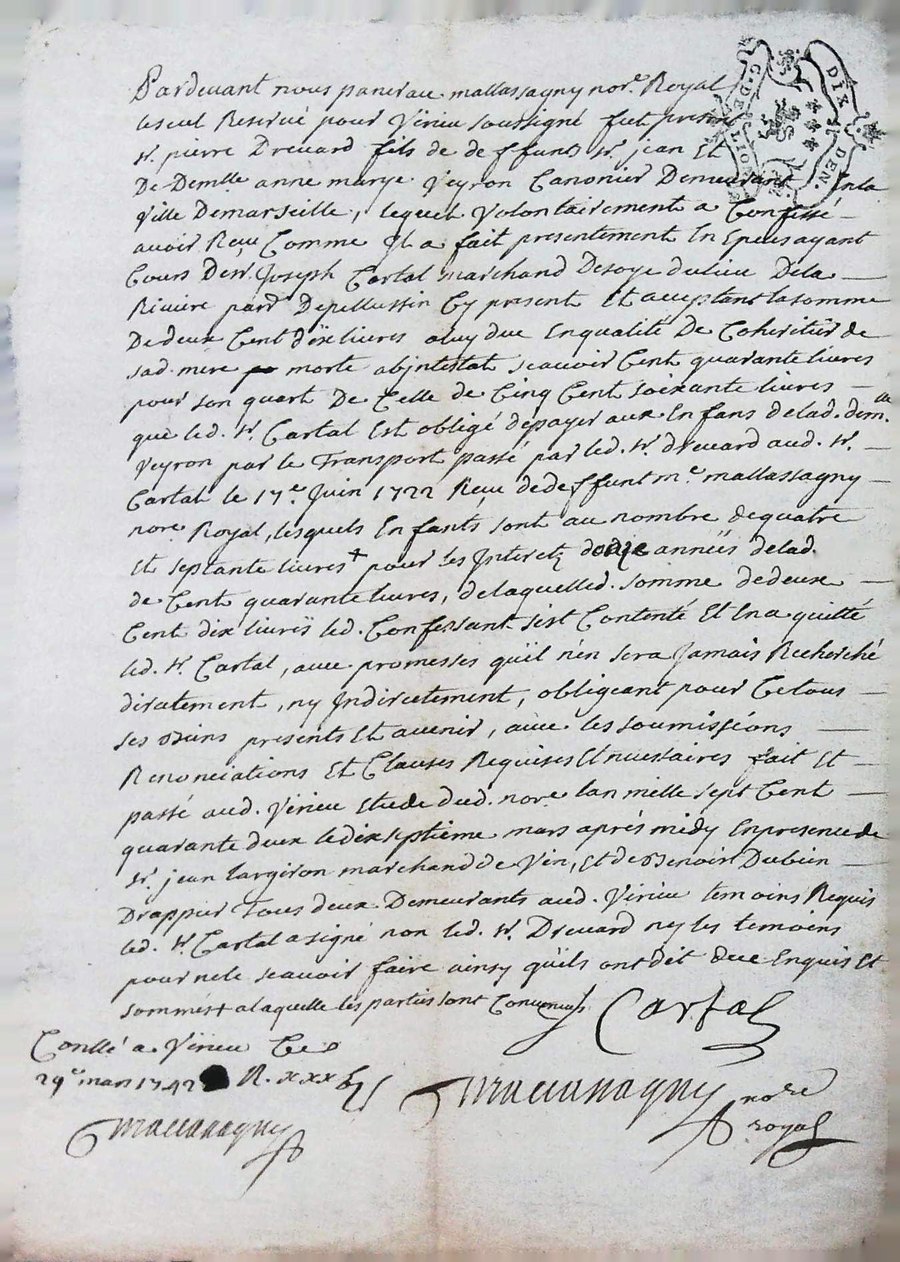 Pardevant nous pancrau mallassagny nor.e Royal
le seul Reservé pour Virieu soussigné fut present
Sr. pierre Drevard fils de deffunts Sr. jean Et
De Demlle anne marye Veyron Canonier Demeurant En la
Ville De marseille, lequel volontairement a Confessé
avoir Reçu Comme Jl a fait presentement En Espèces ayant
Cours De Sr. Joseph Cartal marchand De soye du lieu De la
Riviere parr.e De pellussin Cy present Et acceptant la somme
De deux Cent dix livres a luy due En qualité De Coheritier de
sad. mere morte abjntestat scauoir Cent quarante livres
pour son quart De Celle de Cinq Cent soixante livres
que led. Sr. Cartal Est obligé de payer aux Enfans de lad. dem.lle
Veyron par le Transport passé par led. Sr. drevard aud. Sr.
Cartal le 17.e Juin 1722 Receu de deffunt m.e mallassagny
nore Royal, lesquels Enfants sont au nombre de quatre
Et septante livres + pour les Interetz d'onze années de lad.
de Cent quarante livres, de laquelle d. somme de deux
Cent dix livres led. Confessant s'est Contenté Et En a quitté
led. Sr. Cartal, avec promesses qu'il n'en sera Jamais Recherché
directement, ny Indirectement, obligeant pour Ce tous
ses Biens presents Et avenir, avec les soumissions
Renonciations Et Clauses Requises Et necessaires fait Et
passé aud. Virieu Etude dud. nore lan mille sept Cent
quarante deux le dix septieme mars après midy En presence de
Sr. jean largiron marchand de Vin, Et de Benoit Dubien
Drappier tous deux Demeurants aud. Virieu temoins Requis
led. Sr. Cartal a signé non led. Sr. Drevard ny les temoins
pour ne le scauoir faire ainsy qu'ils ont dit de ce Enquis Et
sommés + a laquelle les parties sont Convenues
Cartal
Conllé a Virieu Ce
29.e mars 1742 R. xxx
mallassagny
mallassagny nore
royal
G. DE LION
DIX DEN.